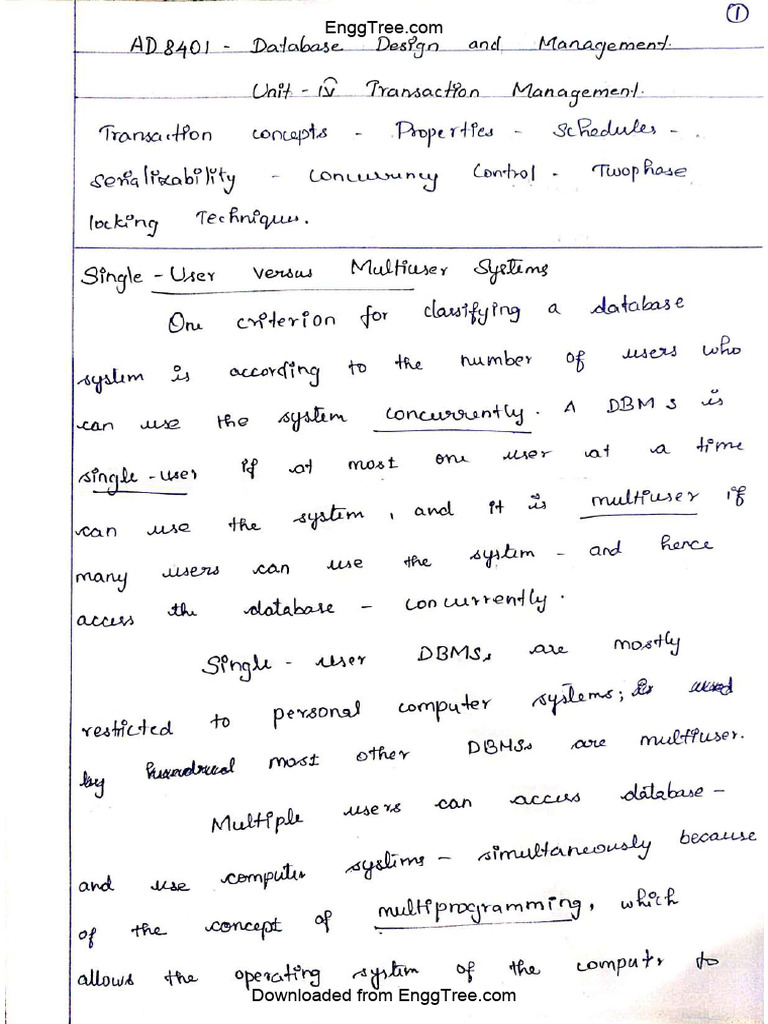 EnggTree.com
①
AD8401 - Database Design and Management.
Unit - IV Transaction Management.
Transaction concepts - Properties - Schedules -
Serializability - Concurrency Control - Twophase
locking Techniques.
Single-User versus Multiuser Systems
One criterion for classifying a database
system is according to the number of users who
can use the system concurrently. A DBMS is
single-user if at most one user at a time
can use the system, and it is multiuser if
many users can use the system - and hence
access the database - concurrently.
Single-user DBMSs are mostly
restricted to personal computer systems; is used
by hundred most other DBMSs are multiuser.
Multiple users can access database -
and use computer systems - simultaneously because
of the concept of multiprogramming, which
allows the operating system of the computer to
Downloaded from EnggTree.com